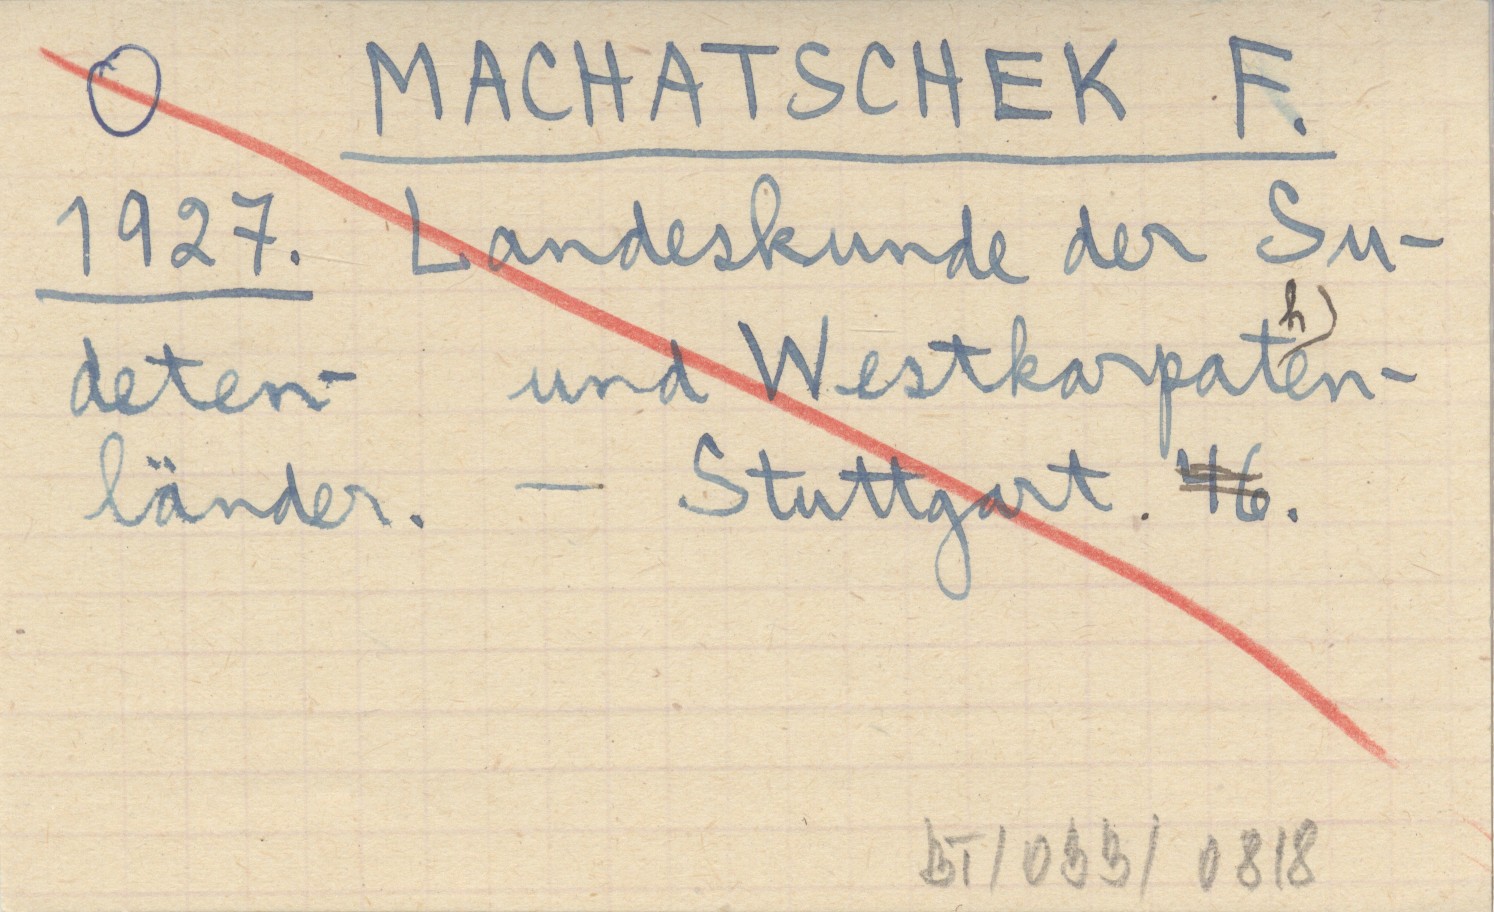 MACHATSCHEK F.
1927. Landeskunde der Su-
h)
deten- und Westkarpaten-
länder. — Stuttgart. 46.
0818